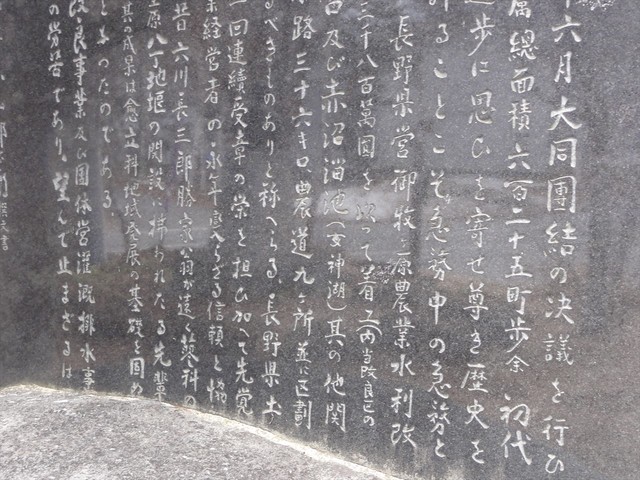 十六月大同團結の決議を行ひ
属總面積六百二十五町歩余 初代
進歩に思ひを寄せ尊き歴史を
ることこそ急務中の急務と
長野県営御牧ヶ原農業水利改
三十八百萬圓を以って着工(内当改良区の
及び赤沼溜池(女神湖)其の他関
路三十六キロ、農道九ヶ所並に区劃
るべきものありと称へらる、長野県土
回連續受章の栄を担ひ加へて先覚
経営者の永年変らざる信頼と協
昔六川長三郎勝家翁が遠く蓼科の
原八丁地堰の開設に拂われたる先輩
其の成果は愈立科地域発展の基礎を固め
となったのである
改良事業及び団体営灌漑排水事
の労苦であり、望んで止まざるは